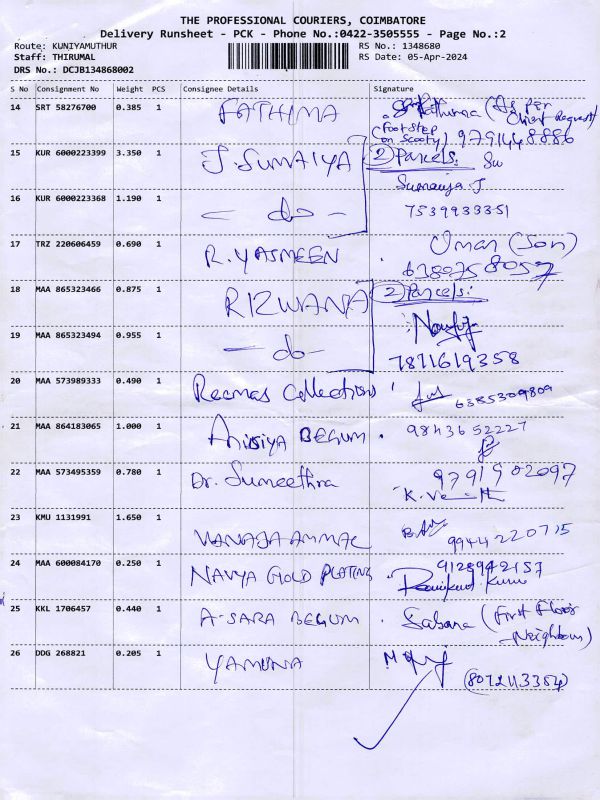 THE PROFESSIONAL COURIERS, COIMBATORE
Delivery Runsheet - PCK - Phone No.:0422-3505555 - Page No.:2
Route: KUNIYAMUTHUR RS No.: 1348680
Staff: THIRUMAL RS Date: 05-Apr-2024
DRS No.: DCJB134868002
S No Consignment No Weight PCS Consignee Details Signature
14 SRT 58276700 0.385 1 FATHIMA Fathima (As per Client Request)
(Foot step on Scooty) 9791448886
15 KUR 6000223399 3.350 1 J. SUMAIYA 2 Parcels:
Sumaiya J
16 KUR 6000223368 1.190 1 - do - 7539933351
17 TRZ 220606459 0.690 1 R. YASMEEN Umar (Son)
6380758057
18 MAA 865323466 0.875 1 RIZWANA 2 Parcels:
19 MAA 865323494 0.955 1 - do - 7871619358
20 MAA 573989333 0.490 1 Reemas Collections 6385309809
21 MAA 864183065 1.000 1 BEGUM. 9843652227
22 MAA 573495359 0.780 1 Dr. Sumeethra 9791902097
K.
23 KMU 1131991 1.650 1 VANAJA AMMAL 9944220715
24 MAA 600084170 0.250 1 NAVYA GOLD PLATING 9128942157
25 KKL 1706457 0.440 1 A. SARA BEGUM Sabana (First Floor Neighbour)
26 DDG 268821 0.205 1 YAMUNA
(8072113354)